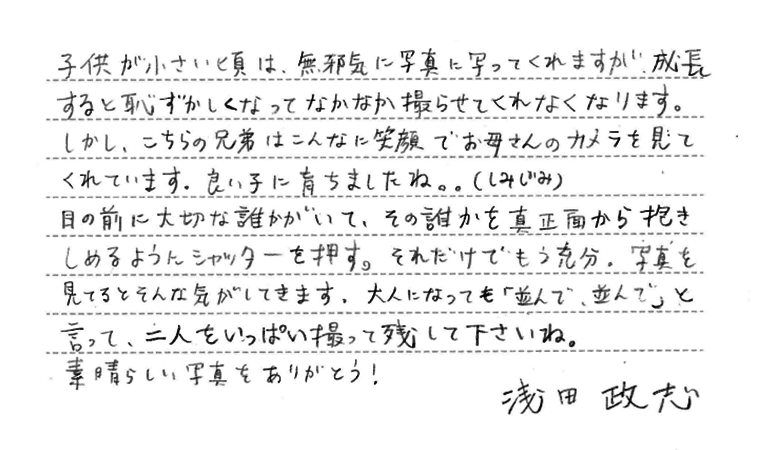 子供が小さい頃は、無邪気に写真に写ってくれますが、成長
すると恥ずかしくなってなかなか撮らせてくれなくなります。
しかし、こちらの兄弟はこんなに笑顔でお母さんのカメラを見て
くれています。良い子に育ちましたね。。(しみじみ)
目の前に大切な誰かがいて、その誰かを真正面から抱き
しめるようにシャッターを押す。それだけでもう充分。写真を
見てるとそんな気がしてきます。大人になっても「並んで、並んで」と
言って、二人をいっぱい撮って残して下さいね。
素晴らしい写真をありがとう!
浅田政志